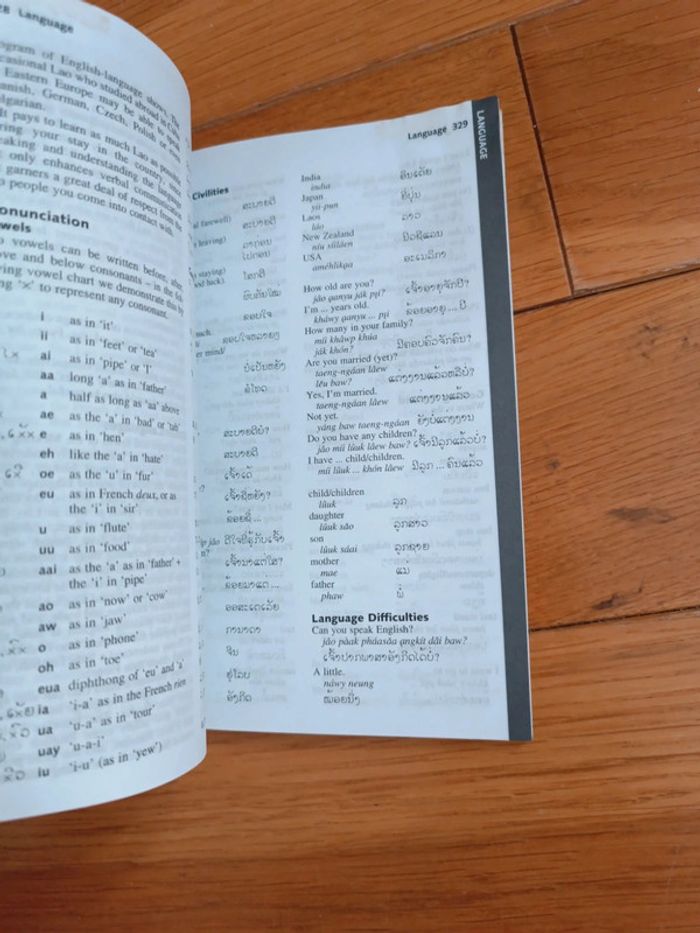 Language
ogram of English-language shows. The
ccasional Lao who studied abroad in Cuba
Eastern Europe may be able to speak
anish, German, Czech, Polish or even
lgarian.
It pays to learn as much Lao as possible
ring your stay in the country, since
aking and understanding the language
only enhances verbal communication
garners a great deal of respect from the
people you come into contact with.
onunciation
wels
vowels can be written before, after,
ove and below consonants – in the
ving vowel chart we demonstrate this by
ng 'x' to represent any consonant.
i as in 'it'
ii as in 'feet' or 'tea'
ai as in 'pipe' or 'I'
aa long 'a' as in 'father'
a half as long as 'aa' above
ae as the 'a' in 'bad' or 'tab'
e as in 'hen'
eh like the 'a' in 'hate'
oe as the 'u' in 'fur'
eu as in French deux, or as
the 'i' in 'sir'
u as in 'flute'
uu as in 'food'
aai as the 'a' as in 'father' +
the 'i' in 'pipe'
ao as in 'now' or 'cow'
aw as in 'jaw'
o as in 'phone'
oh as in 'toe'
eua diphthong of 'eu' and 'a'
ia 'i-a' as in the French rien
ua 'u-a' as in 'tour'
uay 'u-a-i'
iu 'i-u' (as in 'yew')
Language 329
LANGUAGE
Civilities
ສະບາຍດີ
al farewell) ສະບາຍດີ
leaving) ລາກ່ອນ
ໄປກ່ອນ
staying)
ood back) ໂຊກດີ
ພົບກັນໃໝ່
ຂອບໃຈ
uch.
ຂອບໃຈຫລາຍໆ
er mind/
ບໍ່ເປັນຫຍັງ
ຂໍໂທດ
ສະບາຍດີບໍ່?
ສະບາຍດີ
ເຈົ້າເດ້
ເຈົ້າຊື່ຫຍັງ?
ຂ້ອຍຊື່ ...
ດີໃຈທີ່ຮູ້ກັບເຈົ້າ
ເຈົ້າມາແຕ່ໃສ?
ຂ້ອຍມາແຕ່ ...
ອອສະເຕເລັຍ
ການາດາ
ຈີນ
ຢູໂລບ
ອັງກິດ
India ອິນເດັຍ
india
Japan ຍີ່ປຸ່ນ
yii-pun
Laos ລາວ
láo
New Zealand ນິວຊີແລນ
níu síiláen
USA ອະເມລິກາ
améhlikqa
How old are you?
jâo qanyu ják pii? ເຈົ້າອາຍຸຈັກປີ?
I'm ... years old.
khàwy qanyu ... pii ຂ້ອຍອາຍຸ ... ປີ
How many in your family?
míi khâwp khúa
ják khón? ມີຄອບຄົວຈັກຄົນ?
Are you married (yet)?
taeng-ngáan lâew
lẽu baw? ແຕ່ງງານແລ້ວຫລືບໍ່?
Yes, I'm married.
taeng-ngáan lâew ແຕ່ງງານແລ້ວ
Not yet.
yáng baw taeng-ngáan ຍັງບໍ່ແຕ່ງງານ
Do you have any children?
jâo míi lûuk lâew baw? ເຈົ້າມີລູກແລ້ວບໍ່?
I have ... child/children.
míi lûuk ... khón lâew ມີລູກ ... ຄົນແລ້ວ
child/children
lûuk ລູກ
daughter
lûuk sāo ລູກສາວ
son
lûuk sáai ລູກຊາຍ
mother
mae ແມ່
father
phaw ພໍ່
Language Difficulties
Can you speak English?
jâo pàak pháasãa qngkít dâi baw?
ເຈົ້າປາກພາສາອັງກິດໄດ້ບໍ່?
A little.
nâwy neung
ໜ້ອຍນຶ່ງ